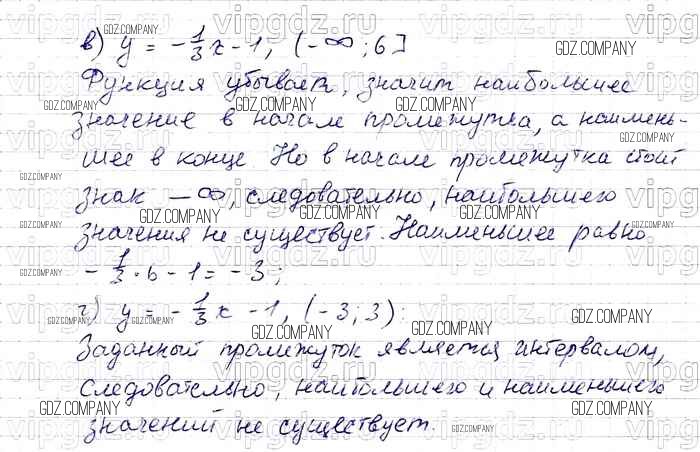 в) y = -1/3 x - 1, (-∞; 6]
Функция убывает, значит наибольшее
значение в начале промежутка, а наимень-
шее в конце. Но в начале промежутка стоит
знак -∞, следовательно, наибольшего
значения не существует. Наименьшее равно
-1/3 · 6 - 1 = -3;
г) y = -1/3 x - 1, (-3; 3):
Заданный промежуток является интервалом,
следовательно, наибольшего и наименьшего
значений не существует.